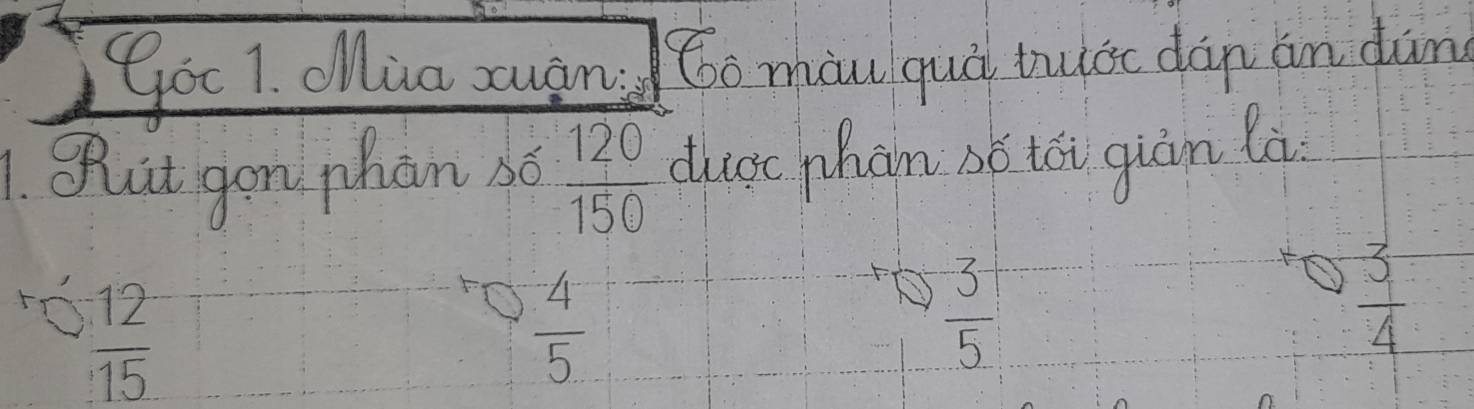 Góc 1. Mùa xuân: Tô màu quả trước đáp án đúng
1. Rút gọn phân số 120/150 được phân số tối giản là:
12/15 4/5 3/5 3/4